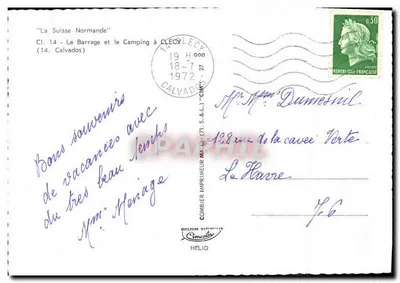 "La Suisse Normande"
Cl. 14 - Le Barrage et le Camping à CLECY
(14. Calvados)
14 CLECY
19 H
18-7
1972
CALVADOS
0,30
REPUBLIQUE FRANÇAISE
Bons souvenirs
de vacances avec
du très beau temps
Mme Menage
COMBIER IMPRIMEUR MACON (71. S.-&-L.) "CIM"
Mr Mme Dumesnil
128 rue de la cavée Verte
Le Havre
76
Combier
HÉLIO